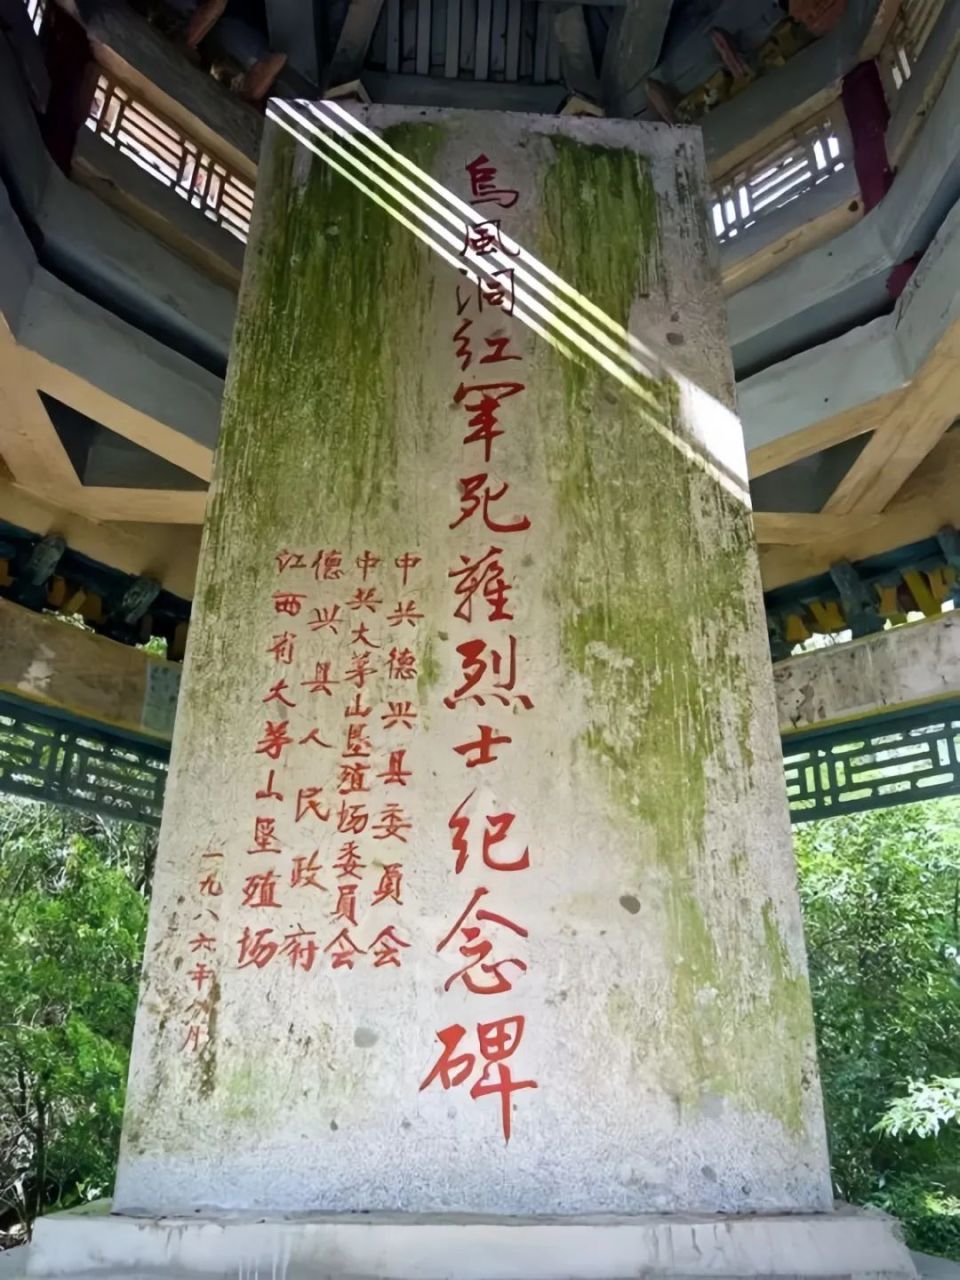 烏風洞红軍死難烈士纪念碑
中共德兴县委員会
中共大茅山垦殖场委員会
德兴县人民政府
江西省大茅山垦殖场
一九八六年八月